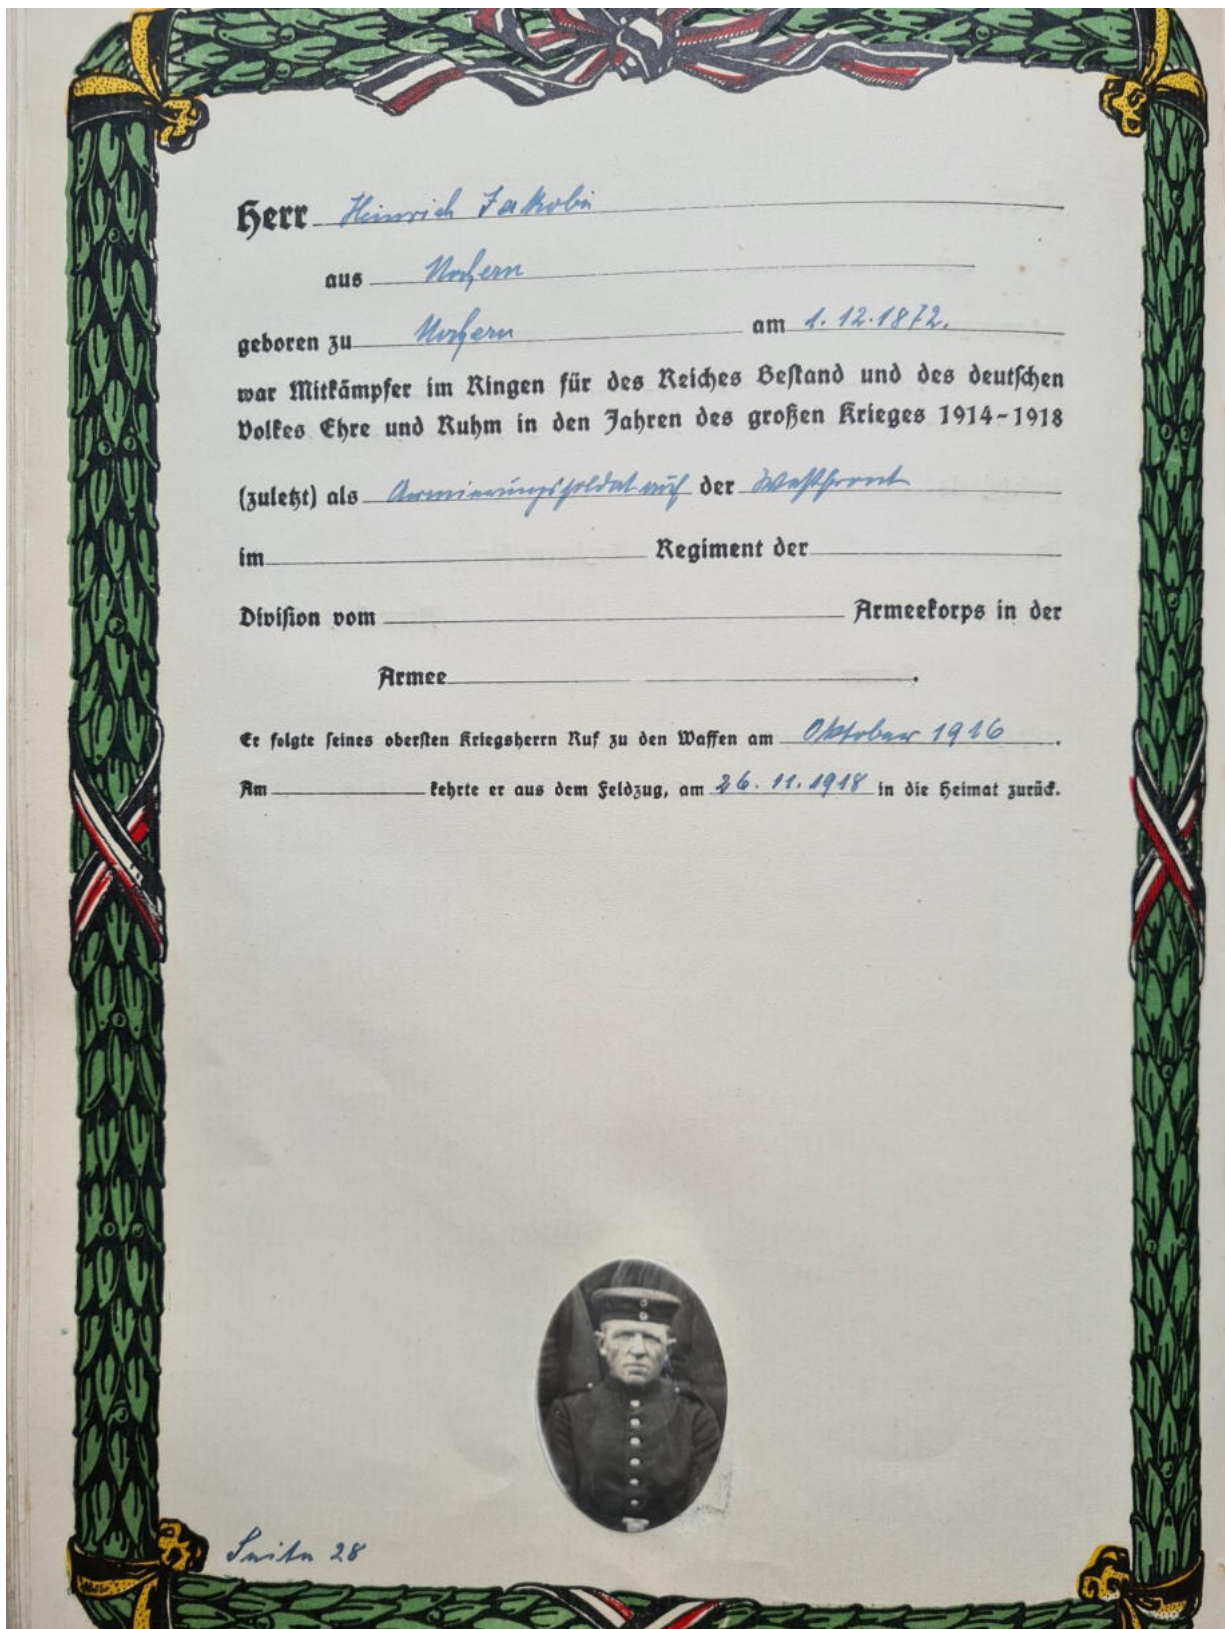 Herr Heinrich Jakobi
aus Nochern
geboren zu Nochern am 1.12.1872.
war Mitkämpfer im Ringen für des Reiches Bestand und des deutschen
Volkes Ehre und Ruhm in den Jahren des großen Krieges 1914-1918
(zuletzt) als Armierungssoldat auf der Westfront
im Regiment der
Division vom Armeekorps in der
Armee .
Er folgte seines obersten Kriegsherrn Ruf zu den Waffen am Oktober 1916 .
Am kehrte er aus dem Feldzug, am 26.11.1918 in die Heimat zurück.
Seite 28